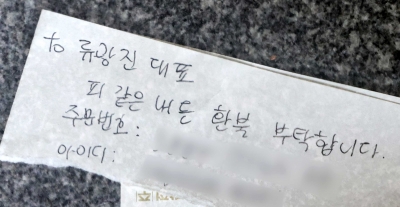 to 류광진 대표
피 같은 내 돈 환불 부탁합니다.
주문번호:
아이디: